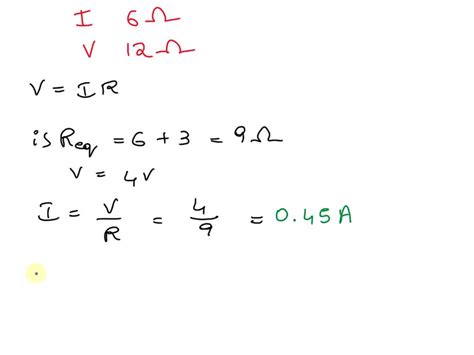 I 6Ω
V 12Ω
V = IR
is Req = 6 + 3 = 9Ω
V = 4V
I = V/R = 4/9 = 0.45A